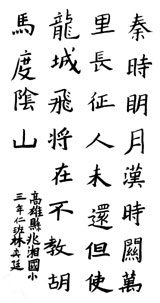 秦時明月漢時關萬
里長征人未還但使
龍城飛将在不教胡
馬度陰山
高雄縣兆湘國小
三年仁班林奕廷